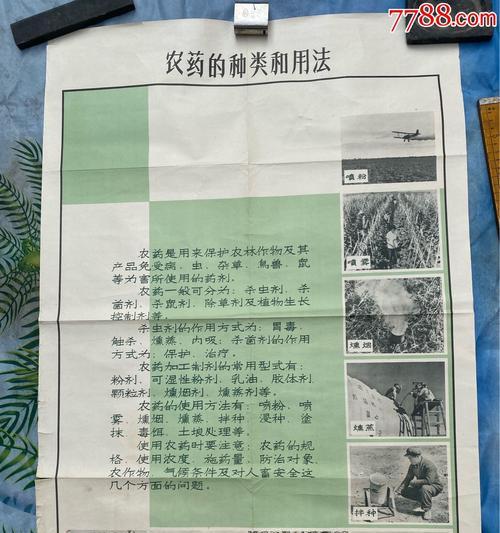 7788.com
农药的种类和用法
喷粉
喷雾
熏烟
熏蒸
拌种
农药是用来保护农林作物及其
产品免受病、虫、杂草、鸟兽、鼠
等为害所使用的药剂。
农药一般可分为：杀虫剂、杀
菌剂、杀鼠剂、除草剂及植物生长
控制剂等。
杀虫剂的作用方式为：胃毒、
触杀、熏蒸、内吸；杀菌剂的作用
方式为：保护、治疗。
农药加工制剂的常用型式有：
粉剂、可湿性粉剂、乳油、胶体剂、
颗粒剂、熏烟剂、熏蒸剂等。
农药的使用方法有：喷粉、喷
雾、熏烟、熏蒸、拌种、浸种、涂
抹、毒饵、土壤处理等。
使用农药时要注意：农药的规
格、使用浓度、施药量、防治对象、
农作物、气候条件及对人畜安全这
几个方面的问题。